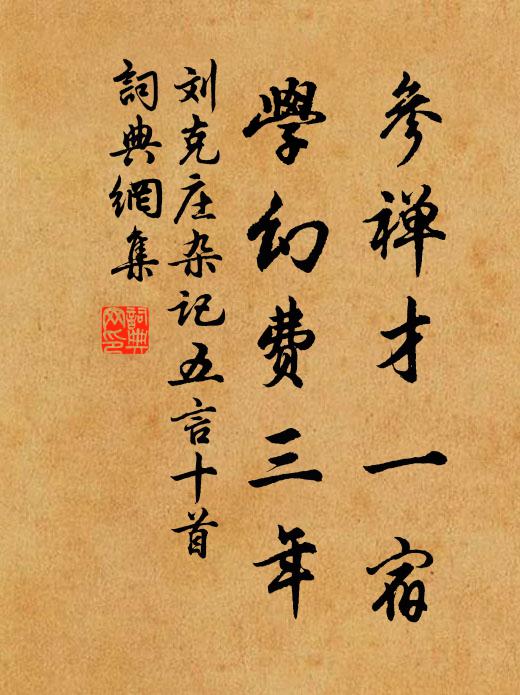 參禅才一宿
學幻费三年
刘克庄杂记五言十首
詞典網集
詞典网印